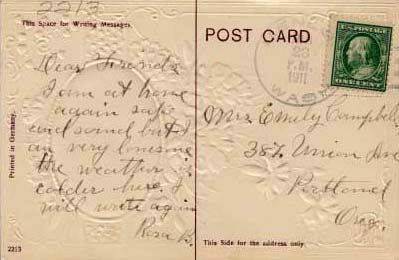 2213
This Space for Writing Messages.
Dear Friends
I am at home
again safe
and sound but I
am very lonesome
the weather is
colder here. I
will write again
Rosa B.
Printed in Germany.
2213
POST CARD
23
P.M.
1911
WASH
U.S. POSTAGE
ONE CENT
Mrs Emily Campbell
387 Union Ave
Portland
Oreg.
This Side for the address only.